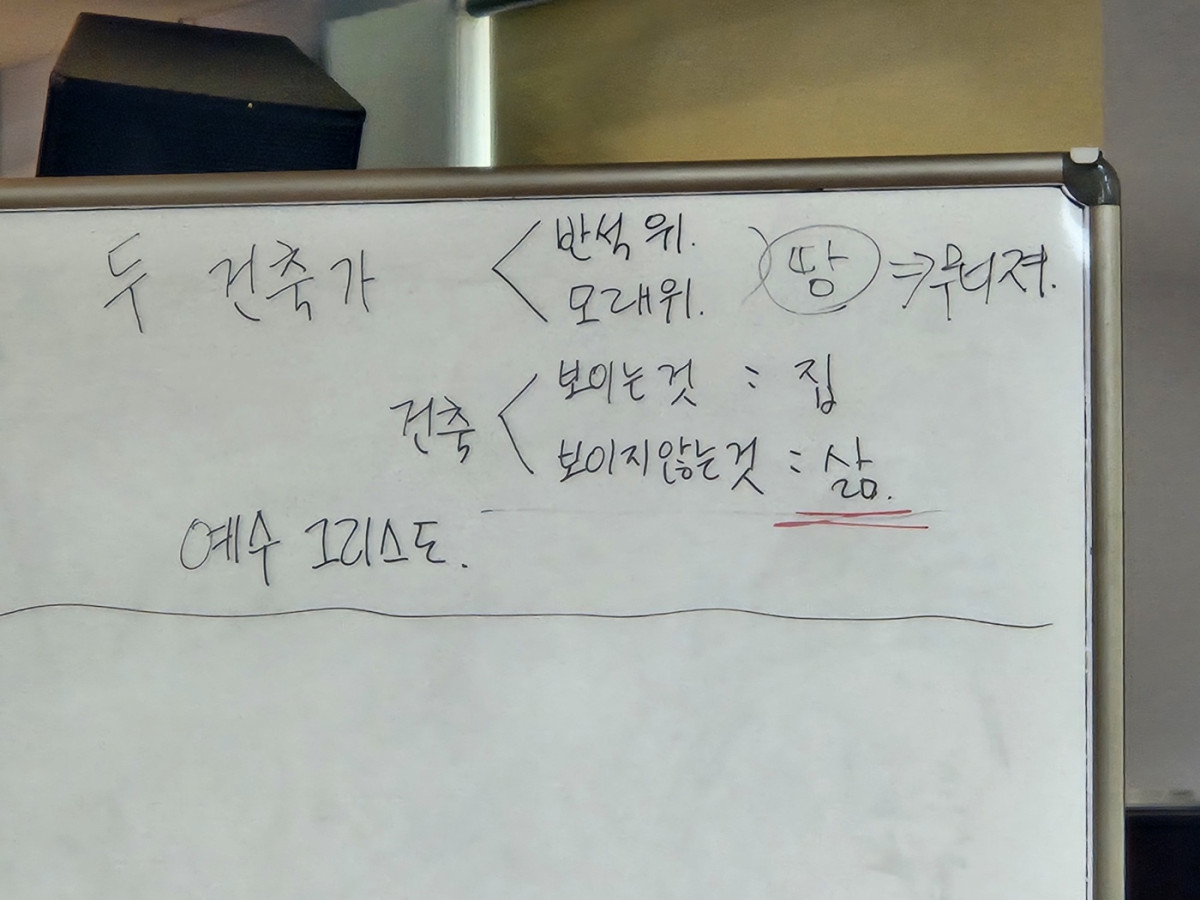 두 건축가 < 반석 위.
모래위. 땅 ⇒
건축 < 보이는것 : 집
보이지않는것 : 삶.
예수 그리스도.